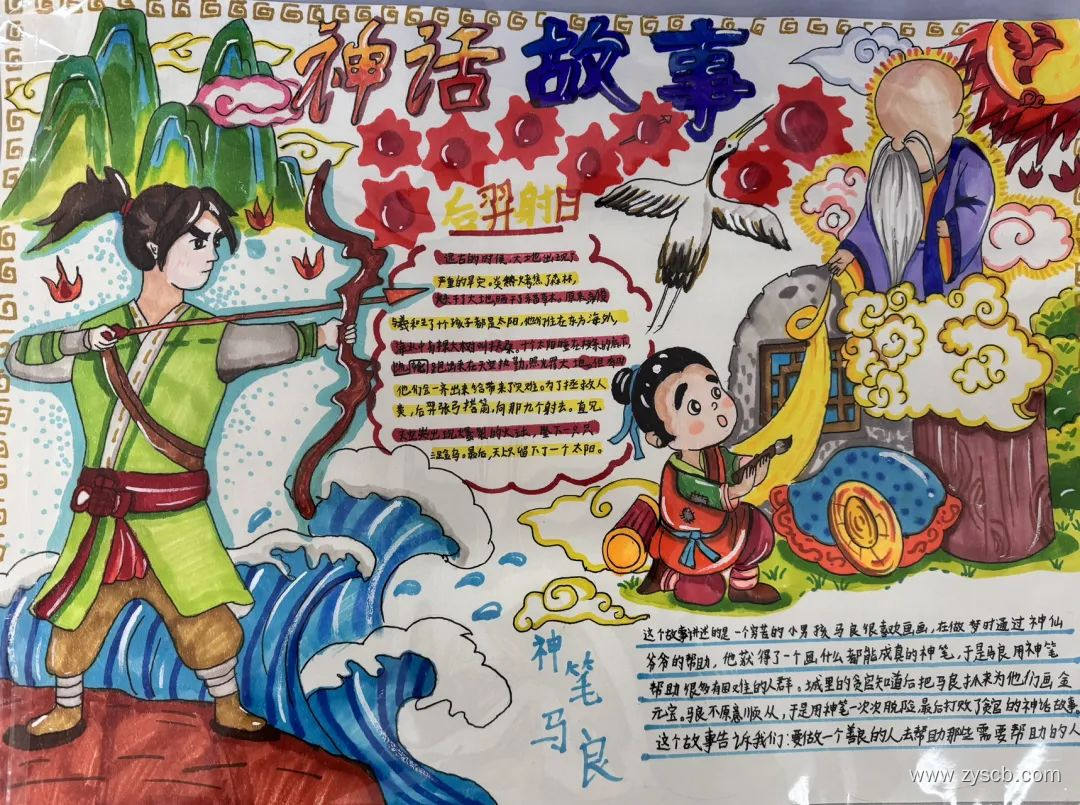 神话故事
后羿射日
远古的时候，大地出现了
严重的旱灾。炎热烤焦了森林，
烘干了大地晒干了禾苗草木。原来帝俊
羲和生了十个孩子都是太阳，他们住在东方海外，
海上中有棵大树叫扶桑。十个太阳睡在枝条的底下，
跑出来在天空执勤，照光罪大地。但有时
他们会一齐出来给带来了灾难。为了拯救人
类，后羿张弓搭箭，向那九个射去。直见
天空出现爆裂的火球，坠下一只只
三足乌。最后，天上留下了一个太阳。
神笔马良
这个故事讲述的是一个穷苦的小男孩马良很喜欢画画，在做梦时通过神仙
爷爷的帮助，他获得了一个画什么都能成真的神笔，于是马良用神笔
帮助很多有困难的人群。城里的贪官知道后把马良抓来为他们画金
元宝。马良不愿意顺从，于是用神笔一次次脱险，最后打败了贪官的神话故事。
这个故事告诉我们：要做一个善良的人去帮助那些需要帮助的人
www.zyscb.com